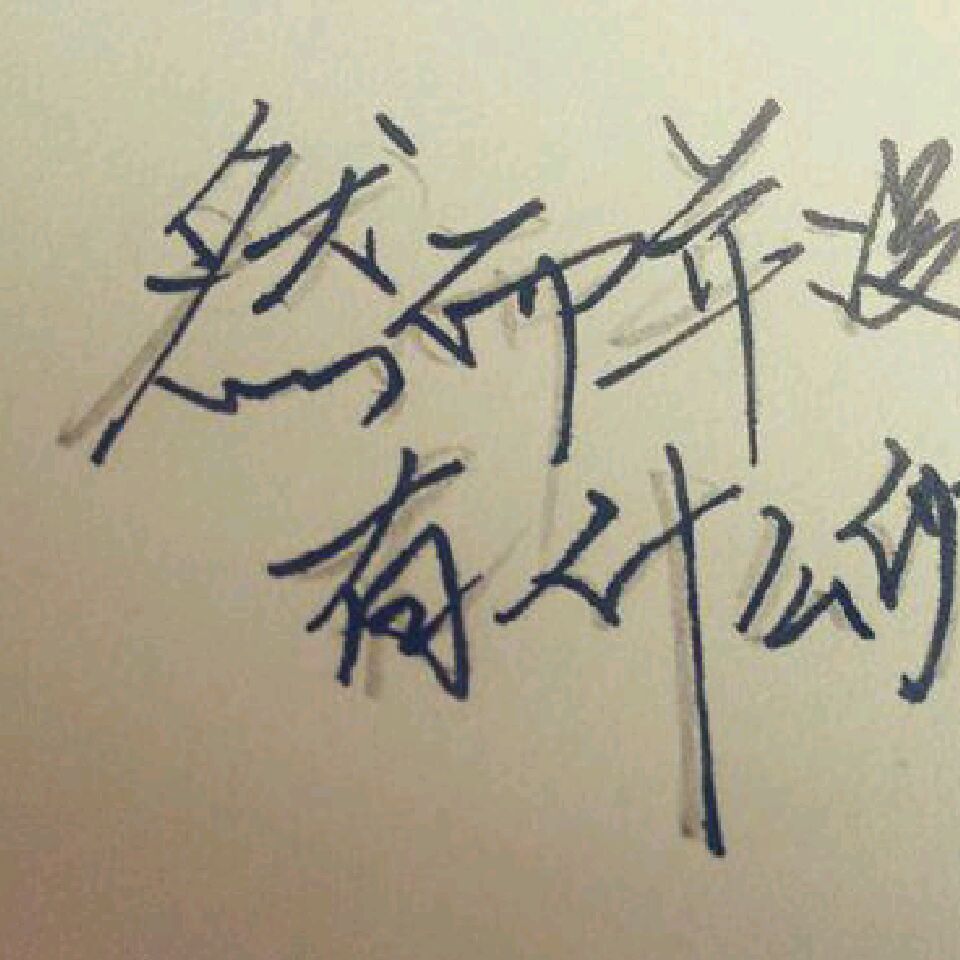 然而并没
有什么